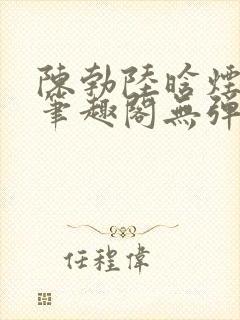 陳勃陸晗煙
筆趣閣無彈
任程偉